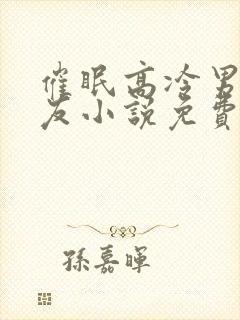 催眠高冷男
友小說免費
孫嘉暉